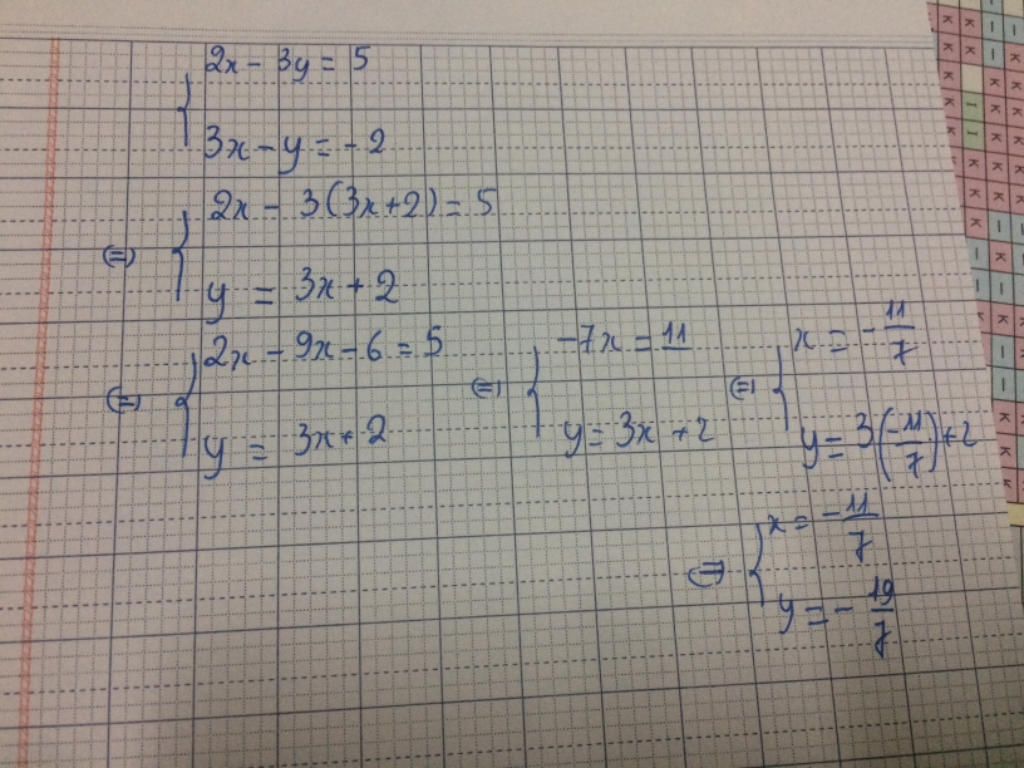 2x - 3y = 5
3x - y = -2
(=) 2x - 3(3x+2) = 5
y = 3x + 2
(=) 2x - 9x - 6 = 5 (=) -7x = 11 (=) x = -11/7
y = 3x + 2 y = 3x + 2 y = 3(-11/7) + 2
(=) x = -11/7
y = -19/7